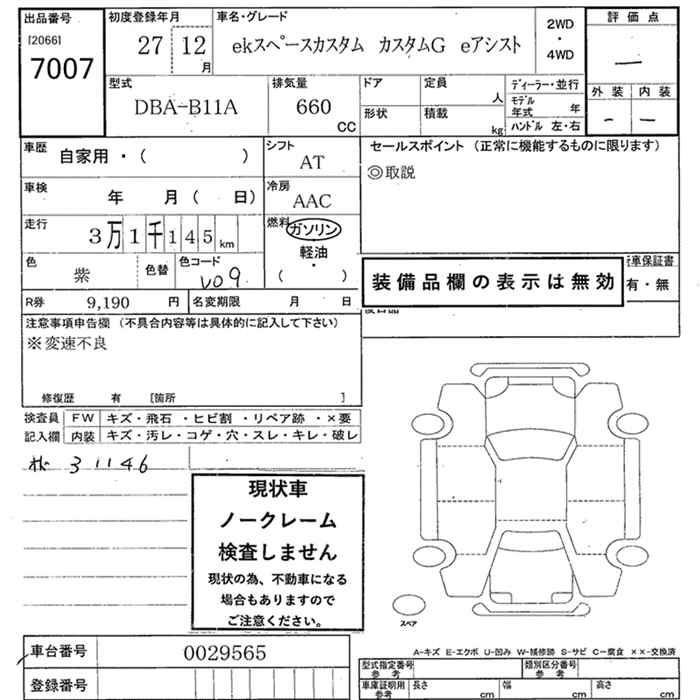 出品番号
[2066]
7007
初度登録年月
27 12 月
車名・グレード
ekスペースカスタム カスタムG eアシスト
2WD
・
4WD
評価点
―
外装 内装
― ―
型式
DBA-B11A
排気量
660 CC
ドア
形状
定員 人
積載 kg
ディーラー・並行
モデル年式 年
ハンドル 左・右
車歴 自家用・( )
シフト
AT
セールスポイント (正常に機能するものに限ります)
◎取説
車検 年 月( 日)
冷房
AAC
走行 3万1千145km
燃料 ガソリン
軽油
・
( )
色 紫
色替
色コード
R券 9,190 円
名変期限 月 日
装備品欄の表示は無効
車保証書
有・無
注意事項申告欄 (不具合内容等は具体的に記入して下さい)
※変速不良
修復歴 有 [箇所 ]
検査員記入欄
FW キズ・飛石・ヒビ割・リペア跡・×要
内装 キズ・汚レ・コゲ・穴・スレ・キレ・破レ
31146
現状車
ノークレーム
検査しません
現状の為、不動車になる
場合もありますので
ご注意ください。
スペア
車台番号 0029565
登録番号
A-キズ E-エクボ U-凹み W-補修跡 S-サビ C-腐食 ××-交換済
型式指定番号 参考
類別区分番号 参考
車庫証明用 参考
長さ cm
幅 cm
高さ cm